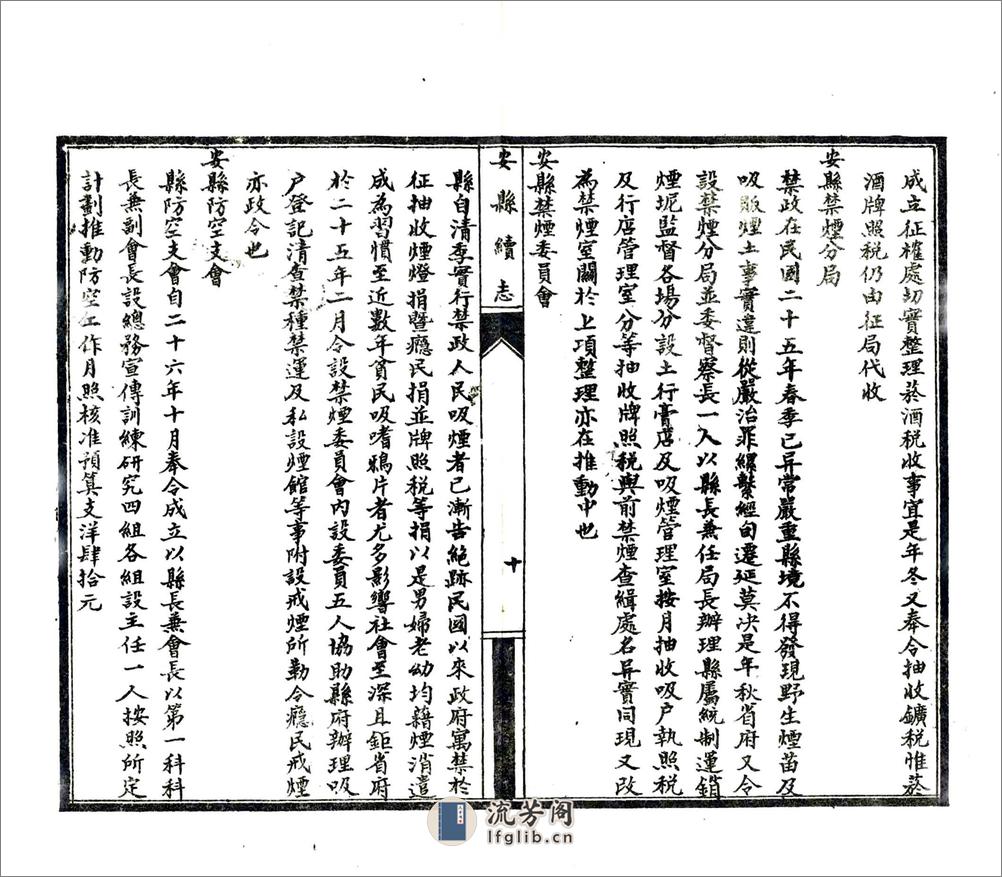 成立征榷處切實整理菸酒税收事宜是年冬又奉令抽收鑛税惟菸
酒牌照税仍由征局代收
安縣禁煙分局
禁政在民國二十五年春季已异常嚴重縣境不得發現野生煙苗及
吸販煙土事實違則從嚴治罪縲繫經旬遷延莫决是年秋省府又令
設禁煙分局並委督察長一人以縣長兼任局長辦理縣屬統制運銷
煙坭監督各場分設土行膏店及吸煙管理室按月抽收吸户執照税
及行店管理室分等抽收牌照税與前禁煙查緝處名异實同現又改
為禁煙室關於上項整理亦在推動中也
安縣禁煙委員會
安縣續志
十
縣自清季實行禁政人民吸煙者已漸告絕跡民國以來政府寓禁於
征抽收煙燈捐暨癮民捐並牌照税等捐以是男婦老幼均藉煙消遣
成為習慣至近數年貧民吸嗜鴉片者尤多影響社會至深且鉅省府
於二十五年二月令設禁煙委員會内設委員五人協助縣府辦理吸
户登記清查禁種禁運及私設煙館等事附設戒煙所勒令癮民戒煙
亦政令也
安縣防空支會
縣防空支會自二十六年十月奉令成立以縣長兼會長以第一科科
長兼副會長設總務宣傳訓練研究四組各組設主任一人按照所定
計劃推動防空工作月照核准預算支洋肆拾元
流芳阁
lfglib.cn